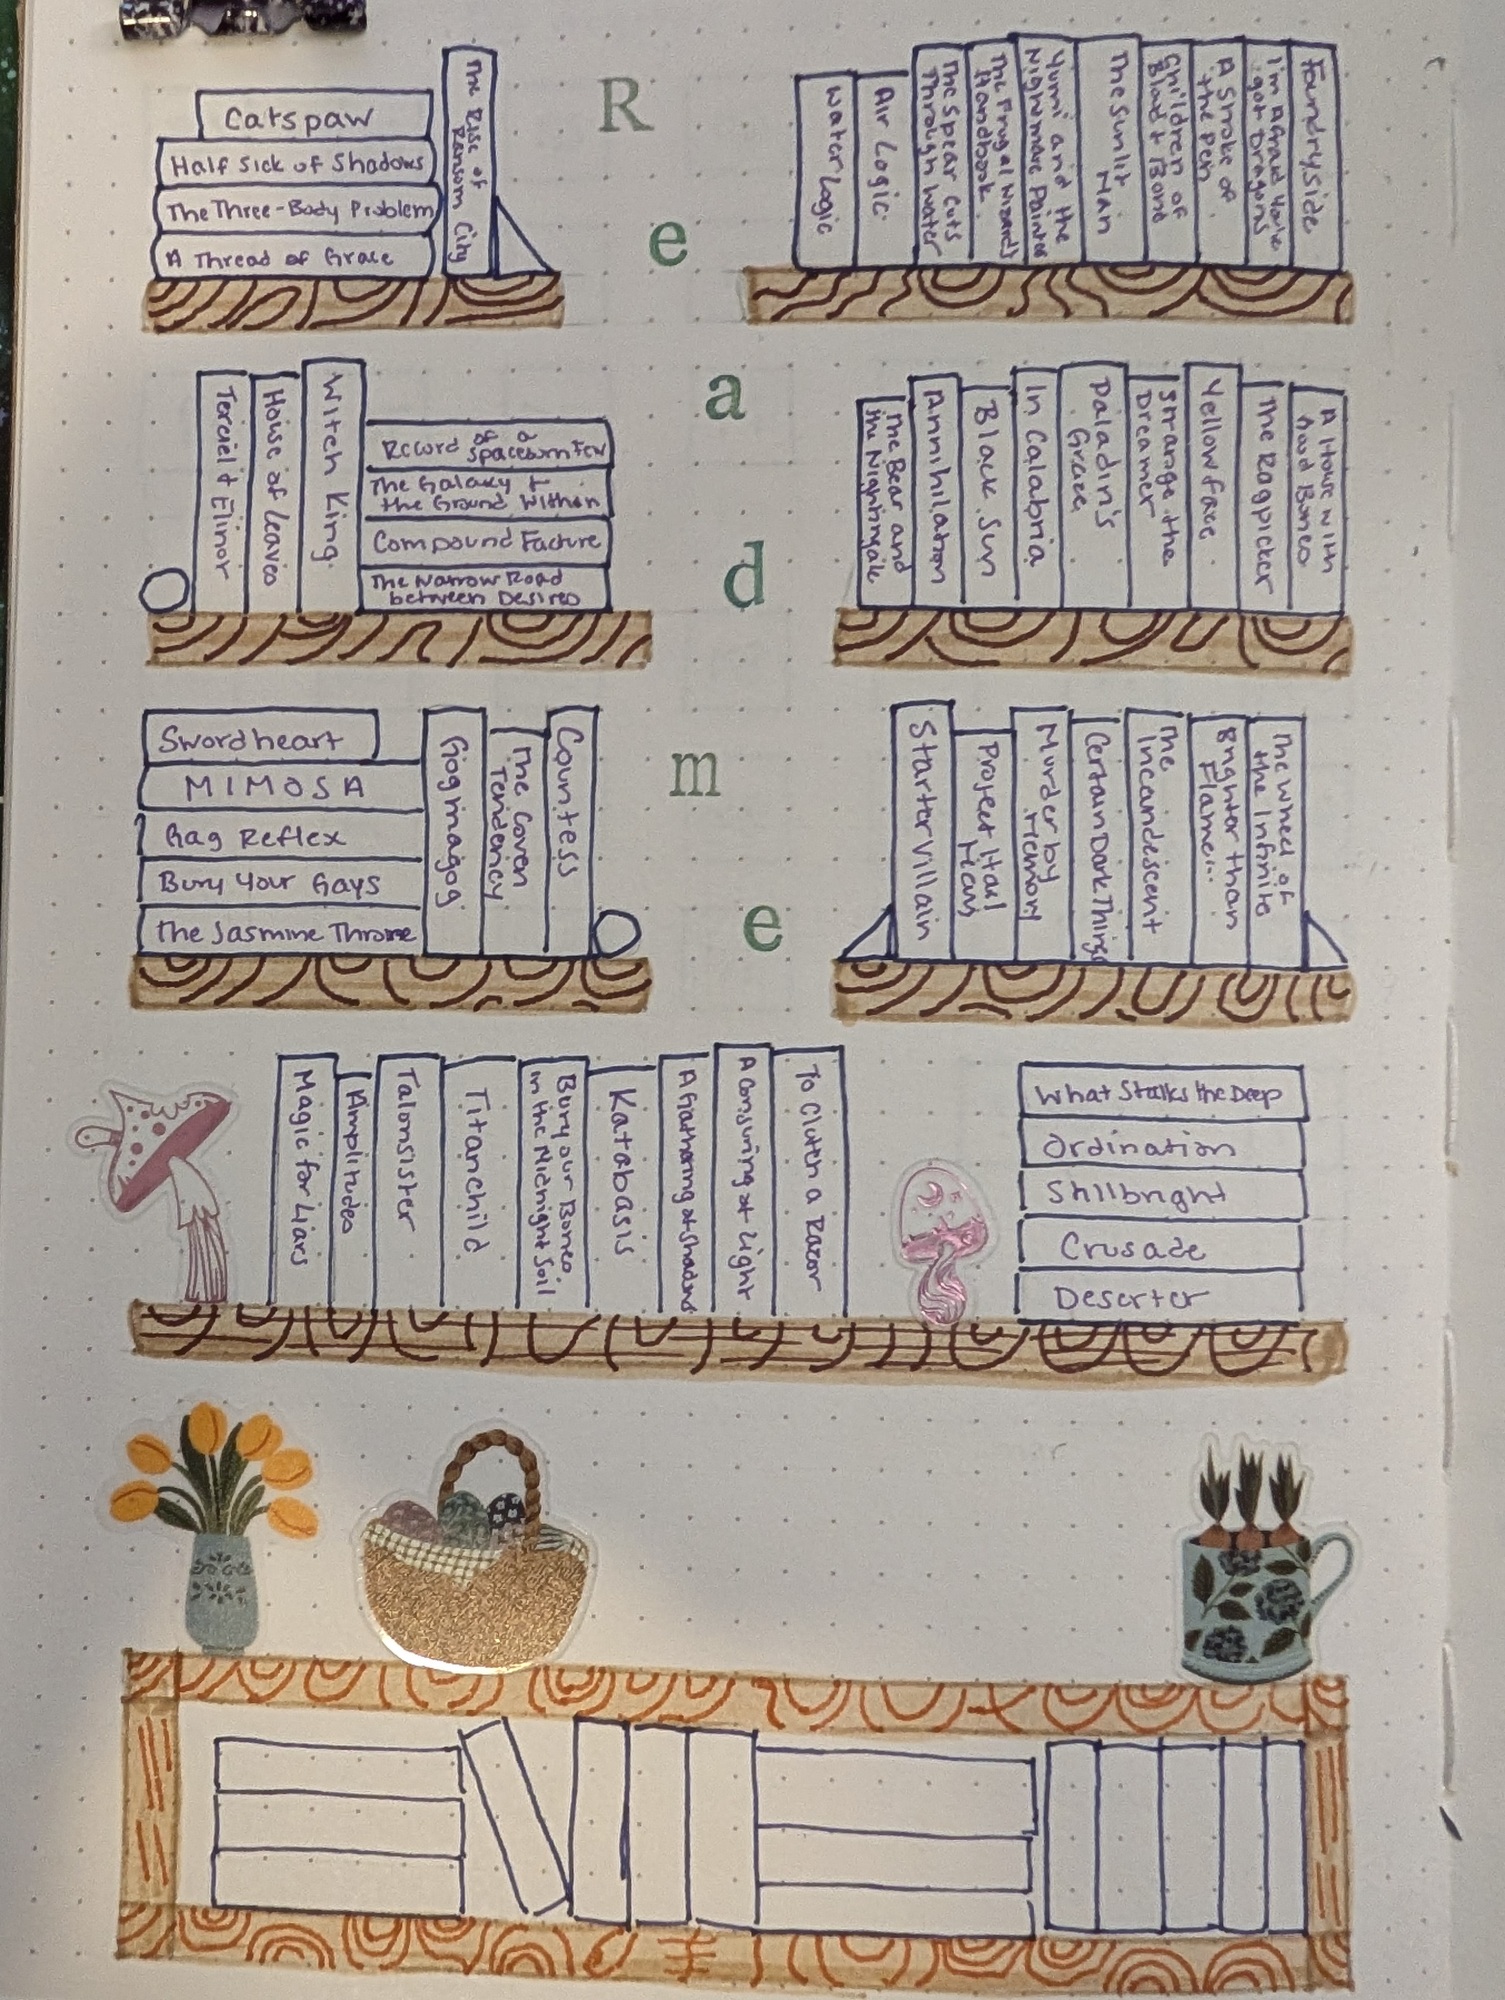 R
e
a
d
m
e
Catspaw
Half Sick of Shadows
The Three-Body Problem
A Thread of Grace
The Rise of
Ransom City
Water Logic
Air Logic
The Spear Cuts
Through Water
The Frugal Wizard's
Handbook
Yumi and the
Nightmare Painter
The Sunlit
Man
Children of
Blood & Bone
A Stroke of
the Pen
I'm Afraid You've
got Dragons
Foundryside
Terciel & Elinor
House of Leaves
Witch King
Record of a
Spaceborn Few
The Galaxy &
the Ground Within
Compound Facture
The Narrow Road
between Desires
The Bear and
the Nightingale
Annihilation
Black Sun
In Calabria
Paladin's
Grace
Strange the
Dreamer
Yellowface
The Ragpicker
A House with
Good Bones
Swordheart
MIMOSA
Gag Reflex
Bury Your Gays
The Jasmine Throne
Gogmagog
The Coven
Tendency
Countess
Starter Villain
Project Hail
Mary
Murder by
Memory
Certain Dark Things
The
Incandescent
Brighter than
Flame...
The Wheel of
the Infinite
Magic for Liars
Amplitudes
Talonsister
Titanchild
Bury our Bones
in the Midnight Soil
Katabasis
A Gathering of Shadows
A Conjuring of Light
To Clutch a Razor
What Stalks the Deep
Ordination
Stillbright
Crusade
Deserter